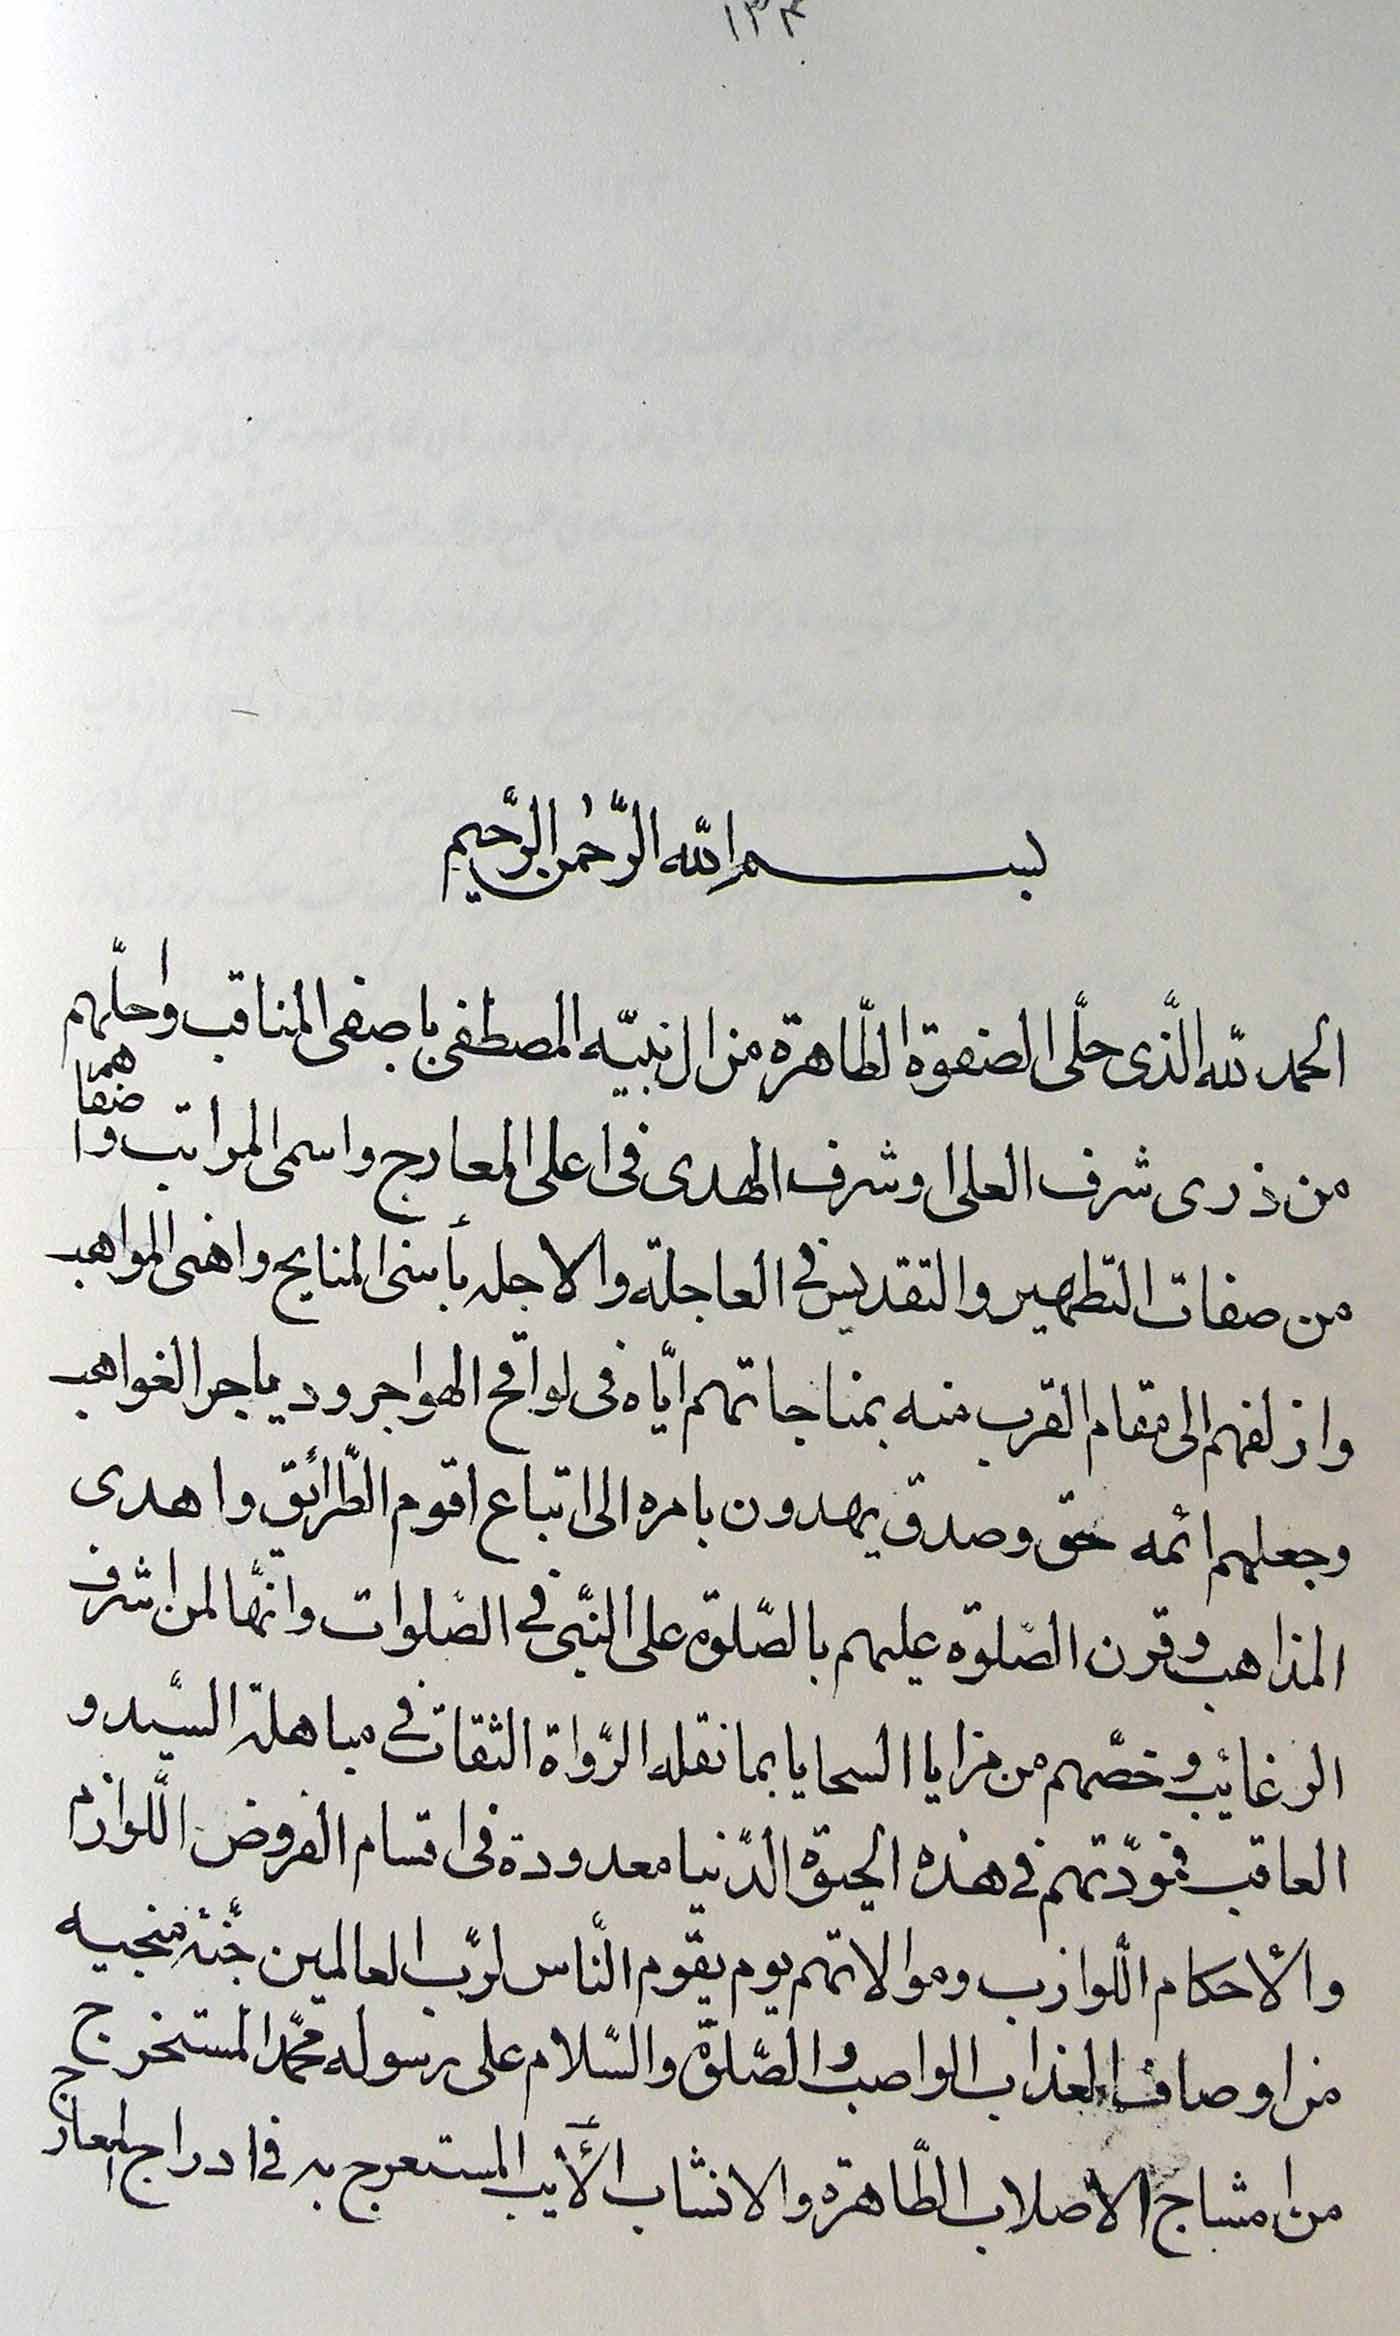 ١٣٤
بسم الله الرَّحمٰن الرَّحيم
الحمد لله الَّذى حلَّى الصفوة الطَّاهرة من ال نبيّه المصطفى باصفى المناقب واحلَّهم
من ذرى شرف العلى وشرف الهدى فى اعلى المعارج واسمى المراتب واضفاهم
من صفات التطهير والتقديس فى العاجلة والاجله بأسنى المنايح واهنى المواهب
وازلفهم الى مقام القرب منه بمناجاتهم ايّاه فى لوافح الهواجر ودياجر الغواهب
وجعلهم ائمه حق وصدق يهدون بامره الى اتباع اقوم الطّرائق واهدى
المذاهب وقرن الصّلوة عليهم بالصّلوة على النّبى فى الصّلوات وانّها لمن اشرف
الرغائب وخصّهم من مزايا السجايا بما نقله الرّواة الثقات فى مباهلة السيّد و
العاقب فمودّتهم فى هذه الحيوة الدّنيا معدودة فى اقسام الفروض اللّوازم
والأحكام اللّوازب وموالاتهم يوم يقوم النّاس لربّ العالمين جُنّة منجيه
من اوصاف العذاب الواصب والصّلوة والسّلام على رسوله محمّد المستخرج
من امشاج الاصلاب الطّاهرة والانشاب المستعرج به فى ادراج المعارج